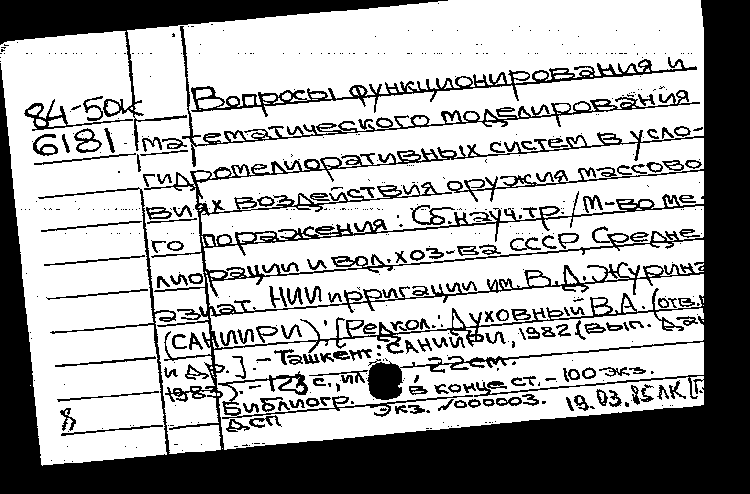 Вопросы функционирования и
84-50к
6181 математического моделирования
гидромелиоративных систем в усло-
виях воздействия оружия массово
го поражения: Сб.науч.тр./М-во ме-
лиорации и вод. хоз-ва СССР, Средне
азиат. НИИ ирригации им. В.Д. Журина
(САНИИРИ); [Редкол.: Духовный В.А. (отв.
и др.]. - Ташкент: САНИИРИ, 1982 (вып. дан
1983). - 123 с., ил ; 22см.
Библиогр. в конце ст. - 100 экз.
Дсп Экз. №000003. 19.03.85 ЛК